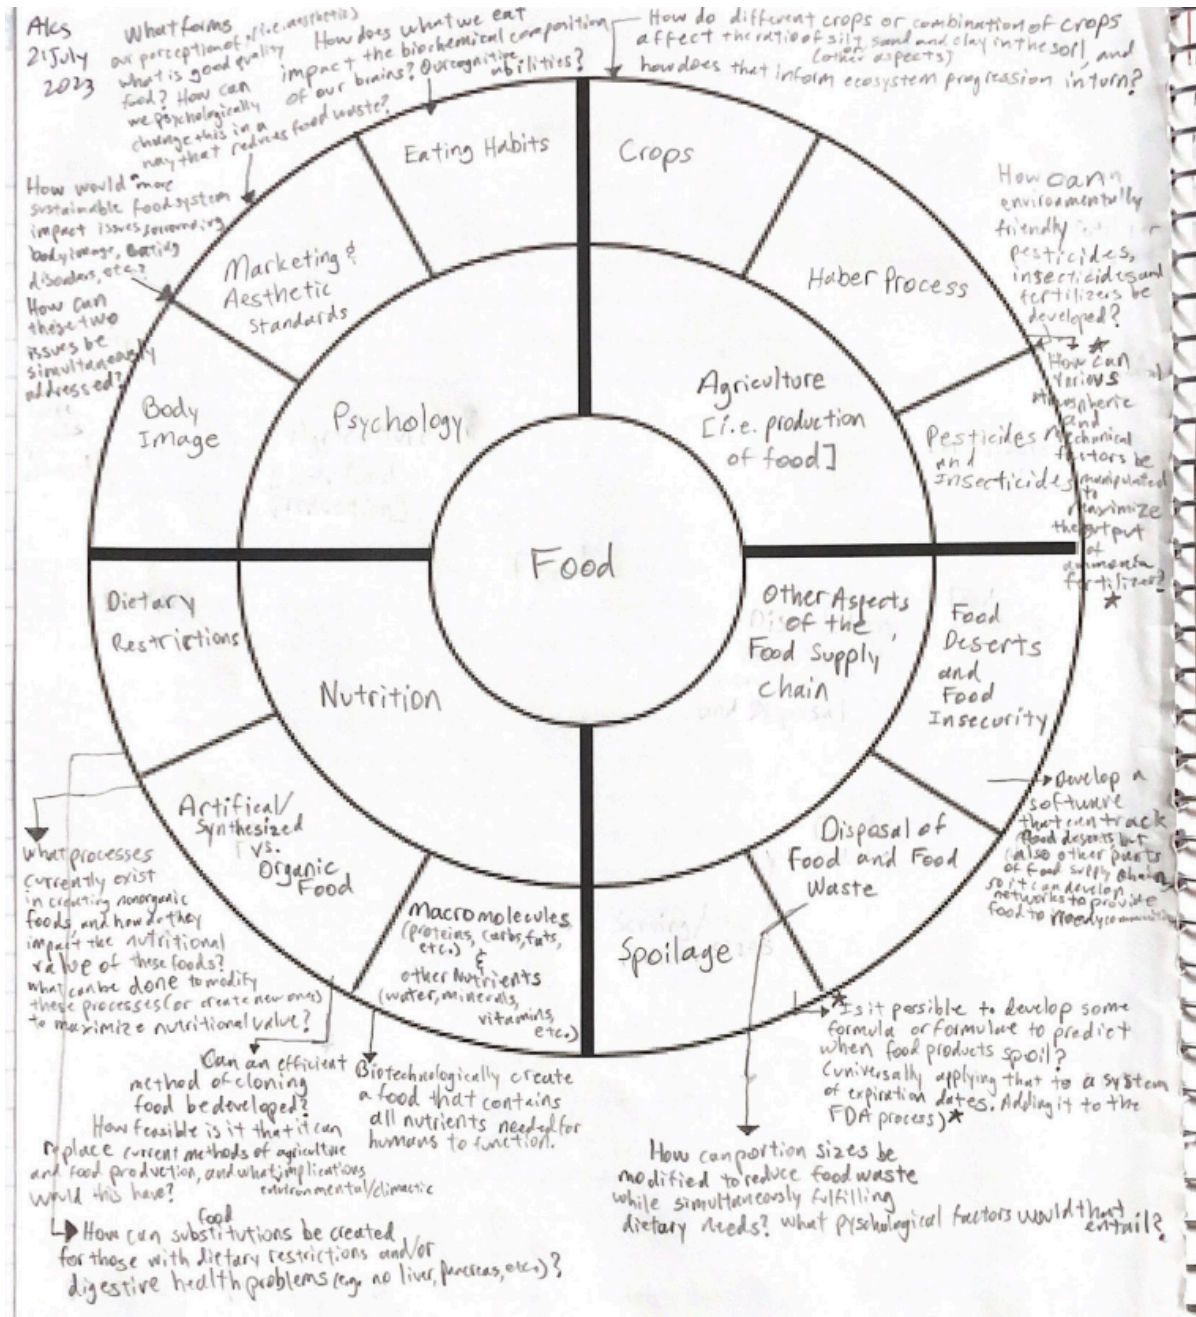 Alcs
21 July
2023
What forms
our perception of (i.e. aesthetics)
what is good quality
food? How can
we psychologically
change this in a
way that reduces food waste?
How does what we eat
impact the biochemical composition
of our brains? Our cognitive
abilities?
How do different crops or combination of crops
affect the ratio of silt, sand and clay in the soil, and
(or other aspects)
how does that inform ecosystem progression in turn?
How would a more
sustainable food system
impact issues surrounding
body image, eating
disorders, etc.?
How can
these two
issues be
simultaneously
addressed?
Eating Habits
Crops
Marketing &
Aesthetic
Standards
Haber Process
How can
environmentally
friendly
pesticides,
insecticides and
fertilizers be
developed?
Body
Image
Psychology
Agriculture
[i.e. production
of food]
Pesticides
and
Insecticides
★ How can ★
various
atmospheric
and
mechanical
factors be
manipulated
to
maximize
the output
of
ammonia
fertilizer?
★
Food
Dietary
Restrictions
Nutrition
Other Aspects
of the
Food Supply
Chain
Food
Deserts
and
Food
Insecurity
Artifical/
Synthesized
vs.
Organic
Food
Macromolecules
(proteins, carbs, fats,
etc.)
&
other Nutrients
(water, minerals,
vitamins,
etc.)
Spoilage
Disposal of
Food and Food
Waste
Develop a
software
that can track
food deserts but
also other parts
of food supply chain
so it can develop
networks to provide
food to needy communities
What processes
currently exist
in creating nonorganic
foods, and how do they
impact the nutritional
value of these foods?
What can be done to modify
these processes (or create new ones)
to maximize nutritional value?
Can an efficient
method of cloning
food be developed?
How feasible is it that it can
replace current methods of agriculture
and food production, and what implications
environmental/climactic
would this have?
Biotechnologically create
a food that contains
all nutrients needed for
humans to function.
★ Is it possible to develop some
formula or formulae to predict
when food products spoil?
(universally applying that to a system
of expiration dates. Adding it to the
FDA process) ★
How can portion sizes be
modified to reduce food waste
while simultaneously fulfilling
dietary needs? What pyschological factors would that
entail?
food
How can substitutions be created
for those with dietary restrictions and/or
digestive health problems (e.g. no liver, pancreas, etc.)?